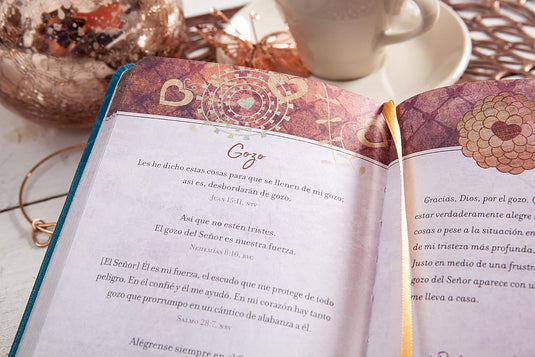 Gozo
Les he dicho estas cosas para que se llenen de mi gozo;
así es, desbordarán de gozo.
Juan 15:11, NTV
Así que no estén tristes,
El gozo del Señor es nuestra fuerza.
Nehemías 8:10, BVC
[El Señor] Él es mi fuerza, el escudo que me protege de todo
peligro. En él confié y él me ayudó. En mi corazón hay tanto
gozo que prorrumpo en un cántico de alabanza a él.
Salmo 28:7, NBV
Alégrense siempre en el Señor
Gracias, Dios, por el gozo.
estar verdaderamente alegre
cosas o pese a la situación en
de mi tristeza más profunda,
Justo en medio de una frustra
gozo del Señor aparece con u
me lleva a casa.